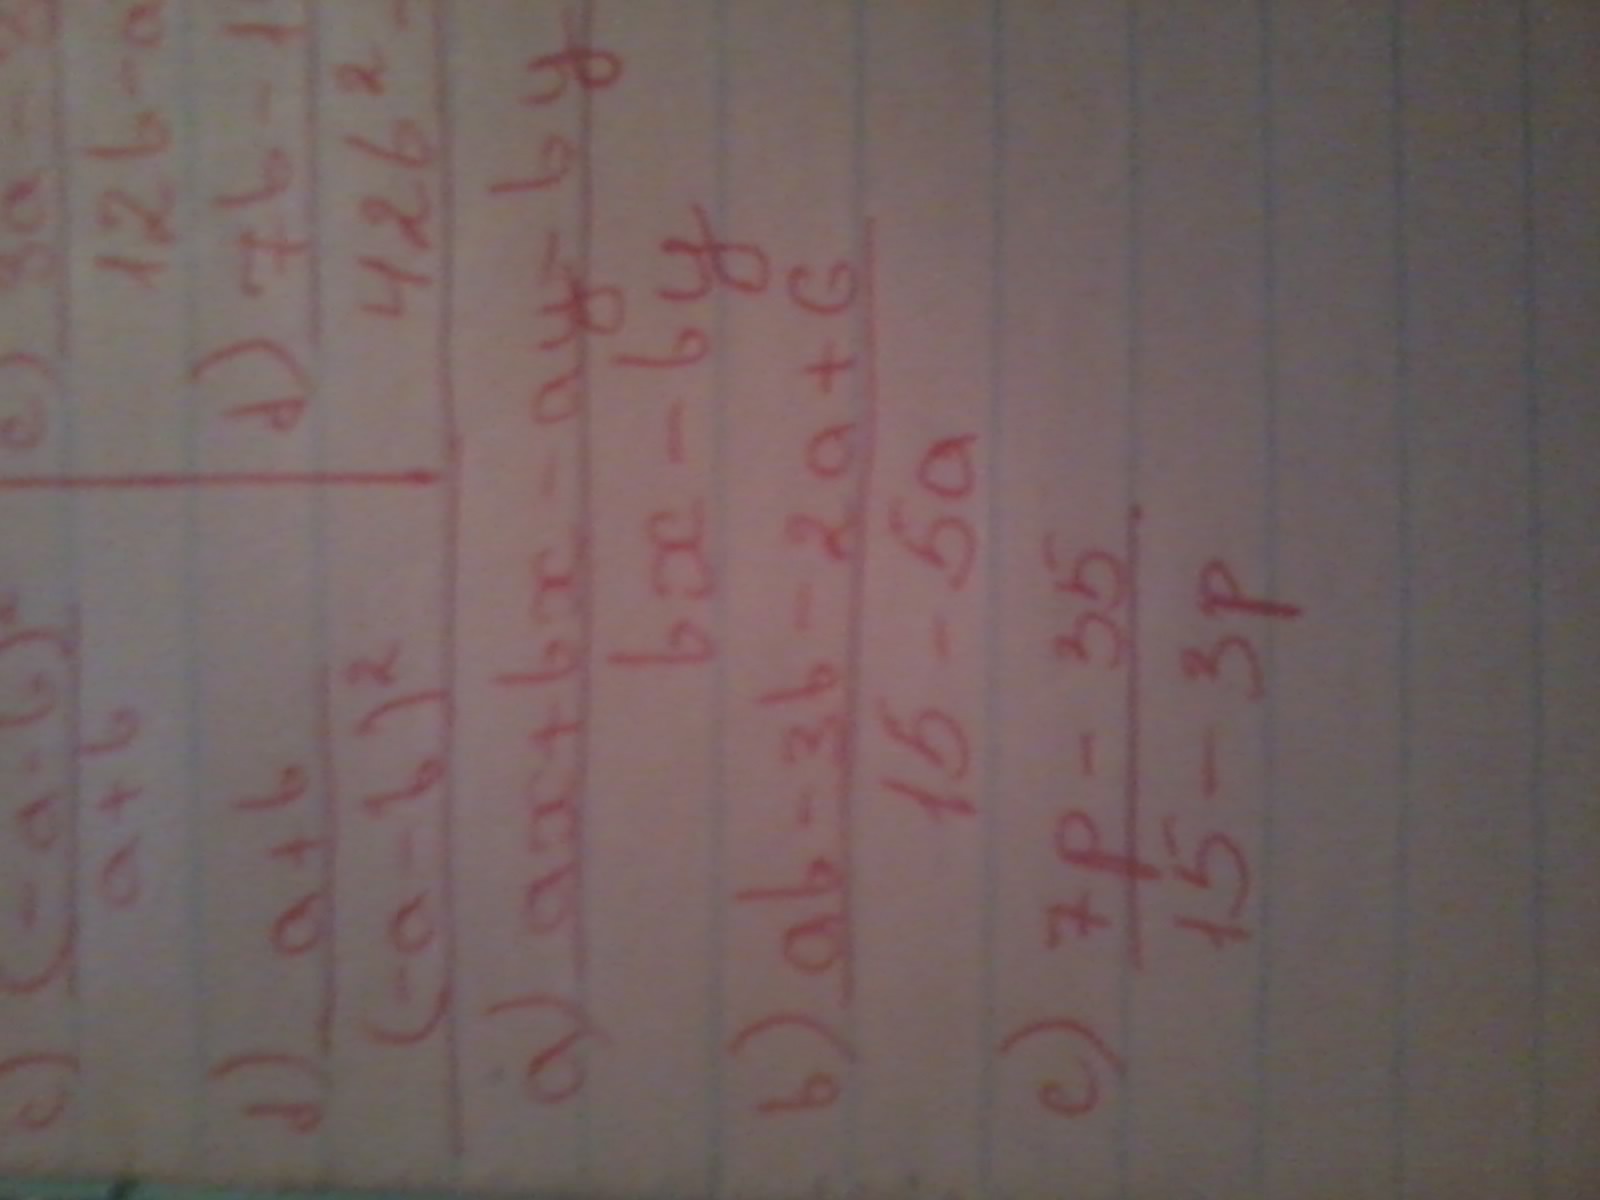 c) (-a-b)²
a+b
d) a+b
(-a-b)²
c) 3a-
12b-a
d) 7b-1
42b²-
a) ax+bx-ay-by
bx-by
b) ab-3b-2a+6
15-5a
c) 7p-35
15-3p